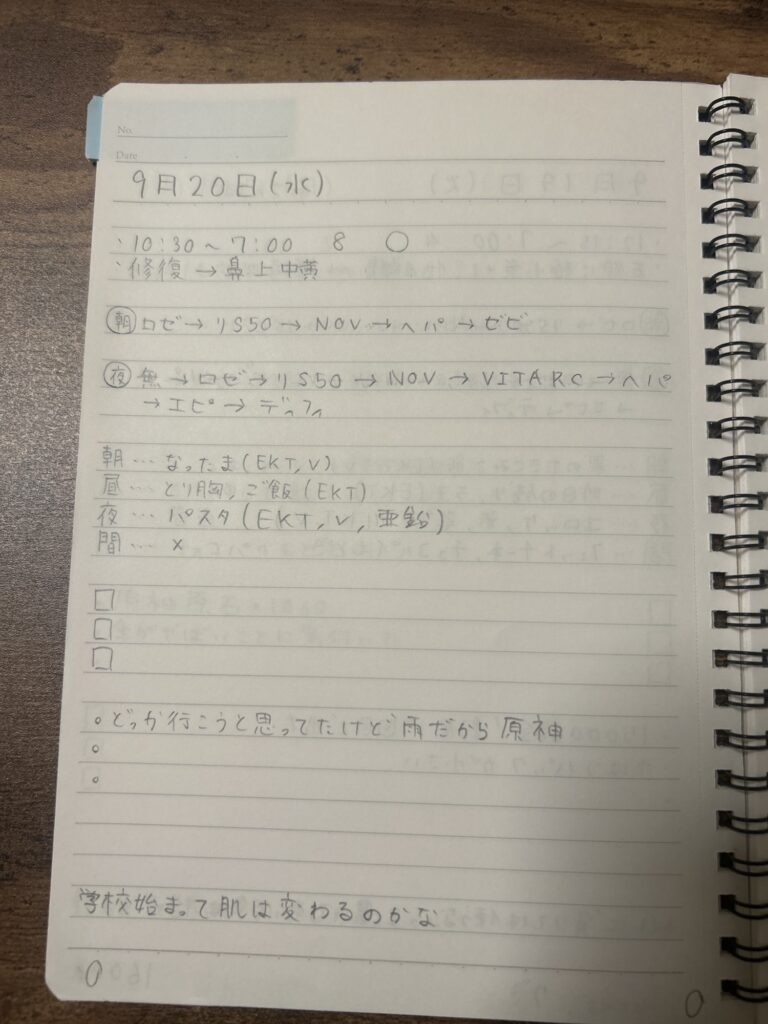 No.
Date
9月20日(水)
・10:30～7:00 8 ○
・修復→鼻上中黄
朝 ロゼ→リS50→NOV→ヘパ→ゼビ
夜 無→ロゼ→リS50→NOV→VITARC→ヘパ
→エピ→ディフィ
朝… なったま(EKT,V)
昼… とり胸,ご飯(EKT)
夜… パスタ(EKT,V,亜鉛)
間… ×
□
□
□
○どっか行こうと思ってたけど雨だから原神
○
○
学校始まって肌は変わるのかな
0 0